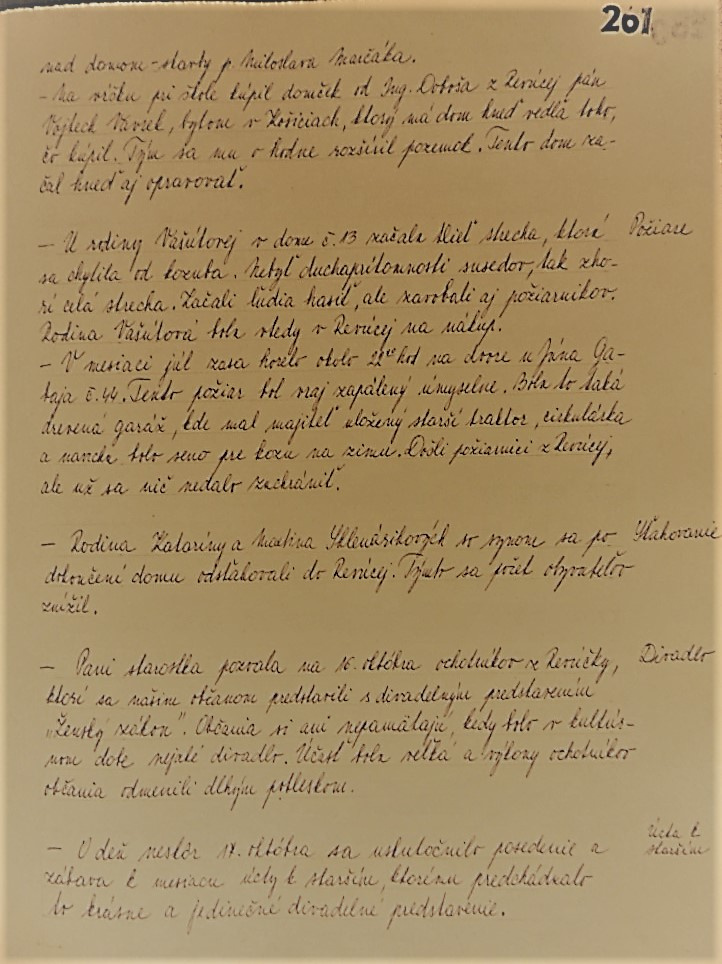 261
nad domom - starby p. Miloslava Marčáka.
- Na vŕšku pri škole kúpil domček od Ing. Doboša z Revúcej pán
Vojtech Vavrek, bytom v Košiciach, ktorý má dom hneď vedľa toho,
čo kúpil. Tým sa mu o hodne rozšíril pozemok. Tento dom za-
čal hneď aj opravovať.
- U rodiny Vašútovej v dome č. 13 začala tlieť strecha, ktorá Požiare
sa chytila od kozuba. Nebyť duchaprítomnosti susedov, tak zho-
rí celá strecha. Začali ľudia hasiť, ale zavolali aj požiarnikov.
Rodina Vašútová bola vtedy v Revúcej na nákup.
- V mesiaci júl zasa horelo okolo 22 hod na dvore u Jána Ga-
baja č. 44. Tento požiar bol vraj zapálený úmyselne. Bola to taká
drevená garáž, kde mal majiteľ uložený starší traktor, cirkulárka
a navrchu bolo seno pre kozu na zimu. Došli požiarnici z Revúcej,
ale už sa nič nedalo zachrániť.
- Rodina Kataríny a Martina Sklenárikových so synom sa po Sťahovanie
dokončení domu odsťahovali do Revúcej. Týmto sa počet obyvateľov
znížil.
- Pani starostka pozvala na 16. októbra ochotníkov z Revúčky, Divadlo
ktorí sa našim občanom predstavili s divadelným predstavením
"Ženský zákon". Občania si ani nepamätajú, kedy bolo v kultúr-
nom dome nejaké divadlo. Účasť bola veľká a výkony ochotníkov
občania odmenili dlhým potleskom.
- O deň neskôr 17. októbra sa uskutočnilo posedenie a Úcta k
starším
zábava k mesiacu úcty k starším, ktorému predchádzalo
to krásne a jedinečné divadelné predstavenie.